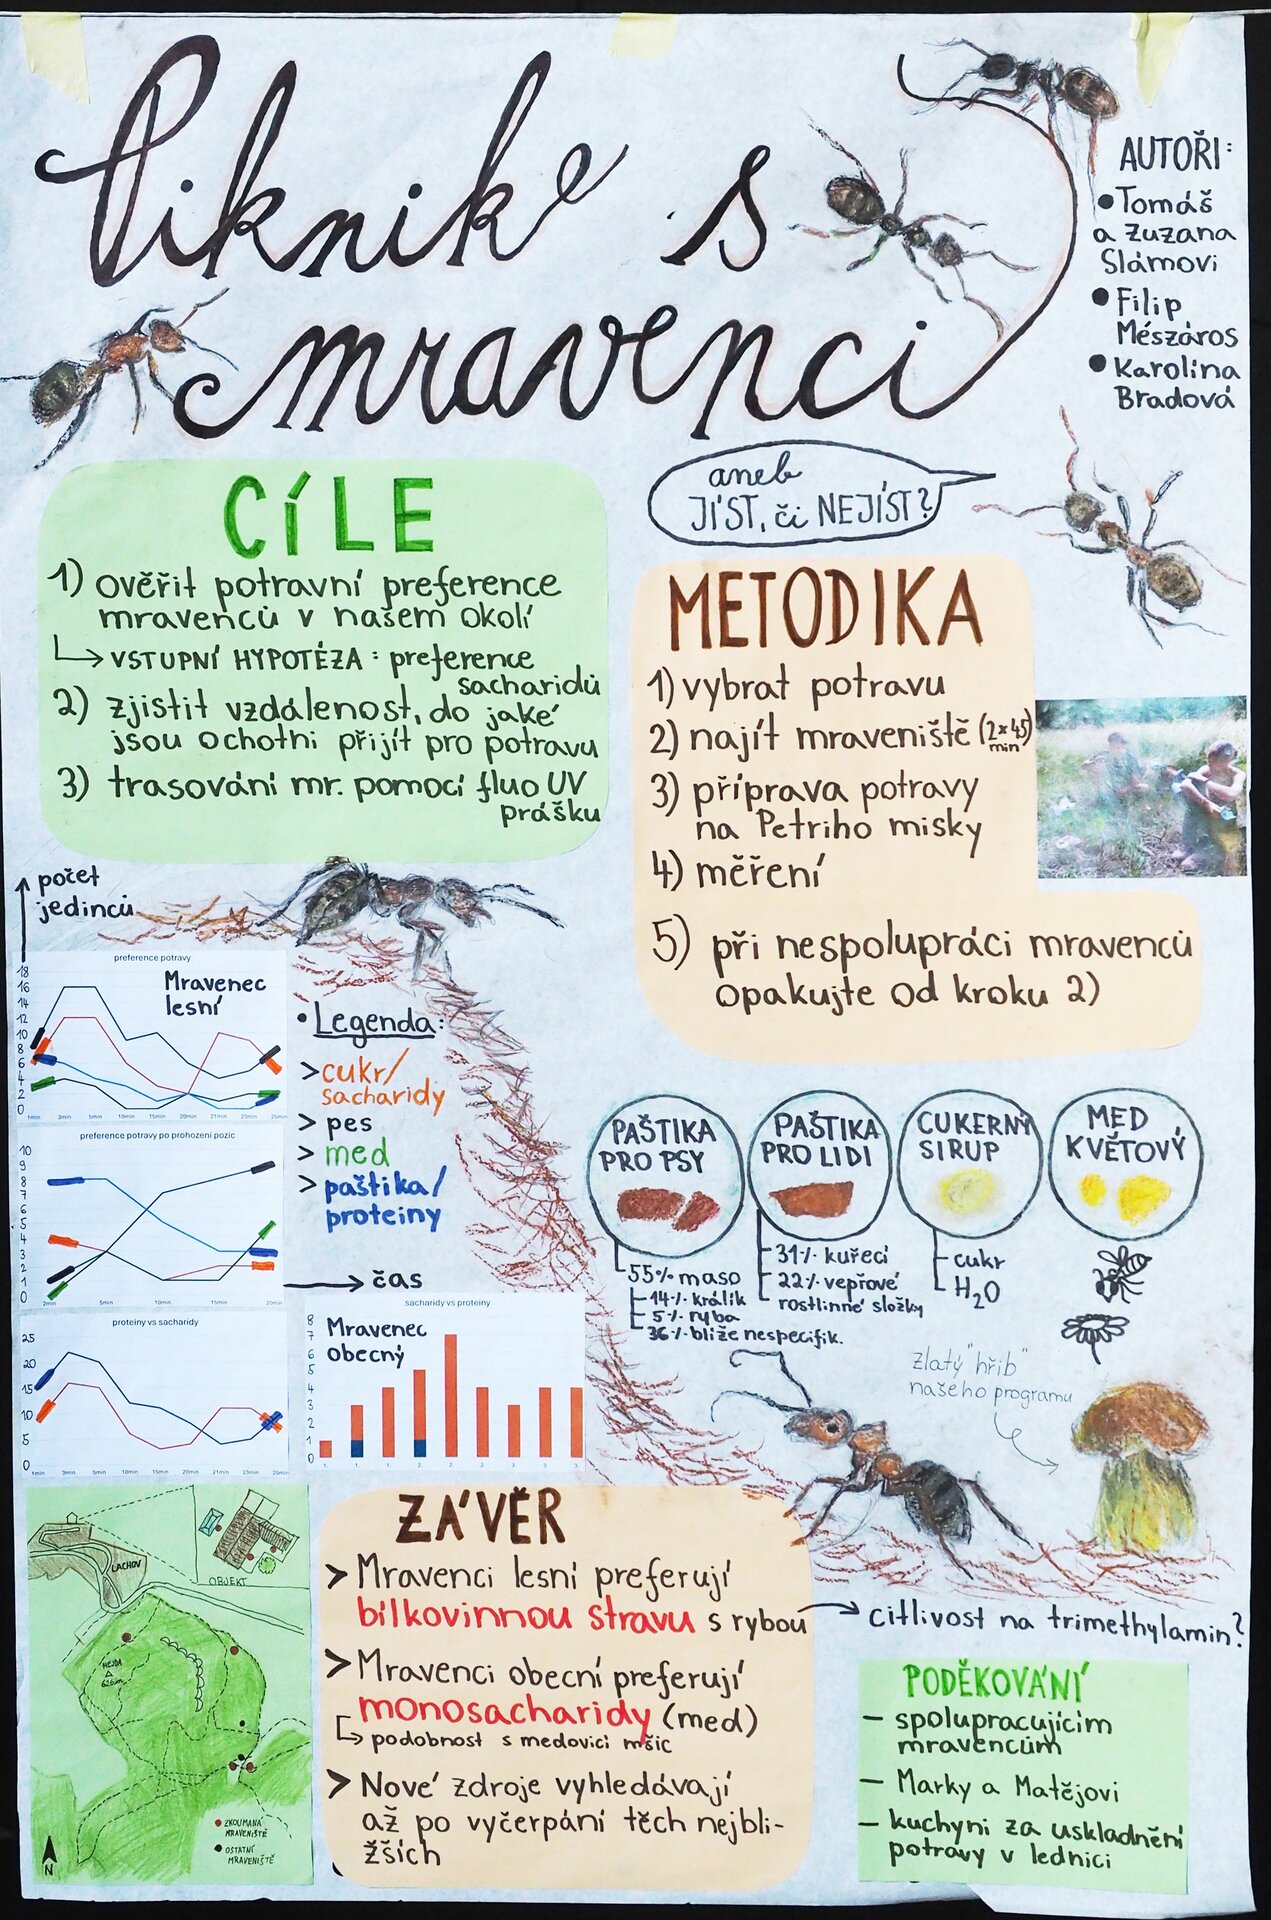 Piknik s
mravenci
AUTOŘI:
• Tomáš
a Zuzana
Slámovi
• Filip
Mészáros
• Karolína
Bradová
aneb
JÍST, či NEJÍST?
CÍLE
1) ověřit potravní preference
mravenců v našem okolí
↳ VSTUPNÍ HYPOTÉZA: preference
sacharidů
2) zjistit vzdálenost, do jaké
jsou ochotni přijít pro potravu
3) trasování mr. pomocí fluo UV
prášku
METODIKA
1) vybrat potravu
2) najít mraveniště (2×45
min)
3) příprava potravy
na Petriho misky
4) měření
5) při nespolupráci mravenců
opakujte od kroku 2)
počet
jedinců
preference potravy
Mravenec
lesní
18
16
14
12
10
8
6
4
2
0
1min 3min 5min 10min 15min 20min 21min 23min 25min
preference potravy po prohození pozic
10
9
8
7
6
5
4
3
2
1
0
2min 5min 10min 15min 20min
čas
• Legenda:
> cukr/
sacharidy
> pes
> med
> paštika/
proteiny
proteiny vs sacharidy
25
20
15
10
5
0
1min 3min 5min 10min 15min 20min 21min 23min 25min
sacharidy vs proteiny
Mravenec
obecný
8
7
6
5
4
3
2
1
0
1. 1. 1. 2. 2. 2. 3. 3. 3.
PAŠTIKA
PRO PSY
55% maso
14% králík
5% ryba
36% blíže nespecifik.
PAŠTIKA
PRO LIDI
31% kuřecí
22% vepřové
rostlinné složky
CUKERNÝ
SIRUP
cukr
H₂O
MED
KVĚTOVÝ
zlatý "hřib"
našeho programu
LACHOV
OBJEKT
HEJDA
626m
ZKOUMANÁ
MRAVENIŠTĚ
OSTATNÍ
MRAVENIŠTĚ
N
ZÁVĚR
> Mravenci lesní preferují
bílkovinnou stravu s rybou
→ citlivost na trimethylamin?
> Mravenci obecní preferují
monosacharidy (med)
↳ podobnost s medovicí mšic
> Nové zdroje vyhledávají
až po vyčerpání těch nejbli-
žších
PODĚKOVÁNÍ
– spolupracujícím
mravencům
– Marky a Matějovi
– kuchyni za uskladnění
potravy v lednici